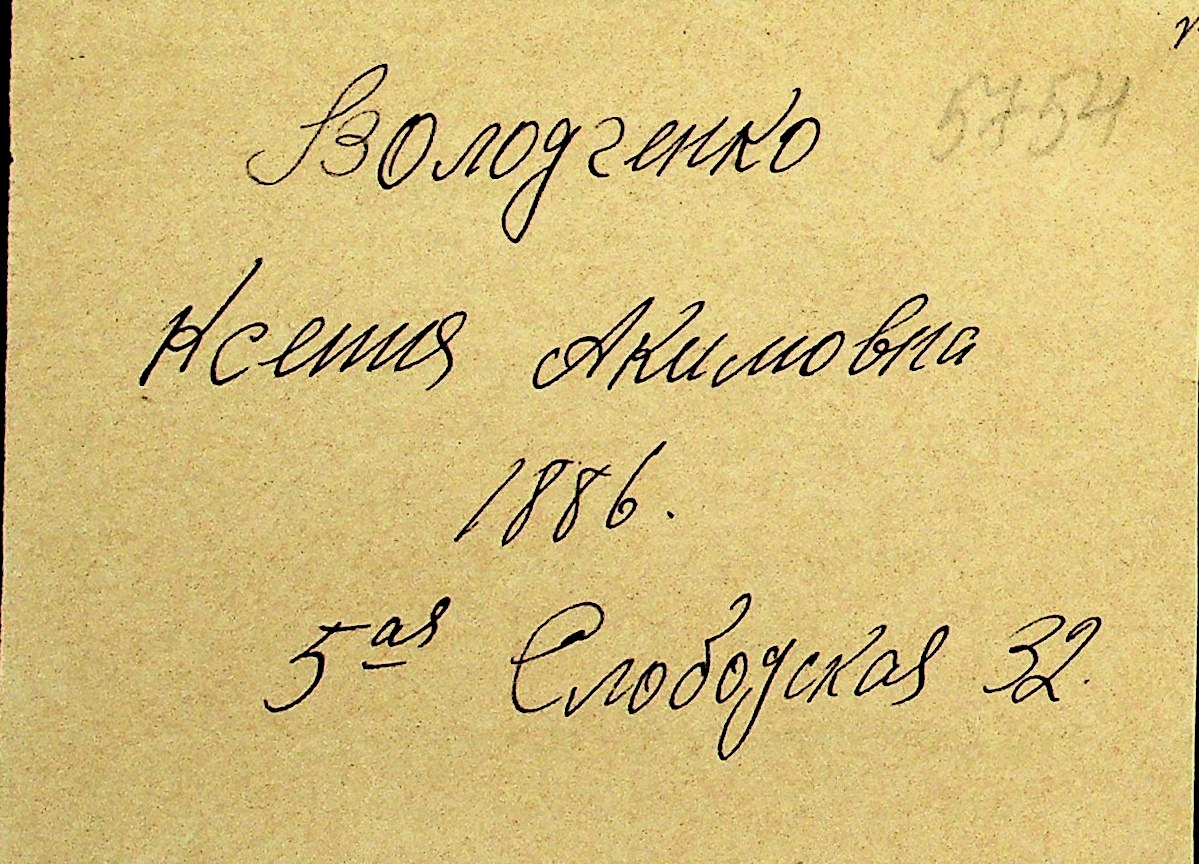 Володченко 5754
Ксения Акимовна
1886.
5ая Слободская 32.